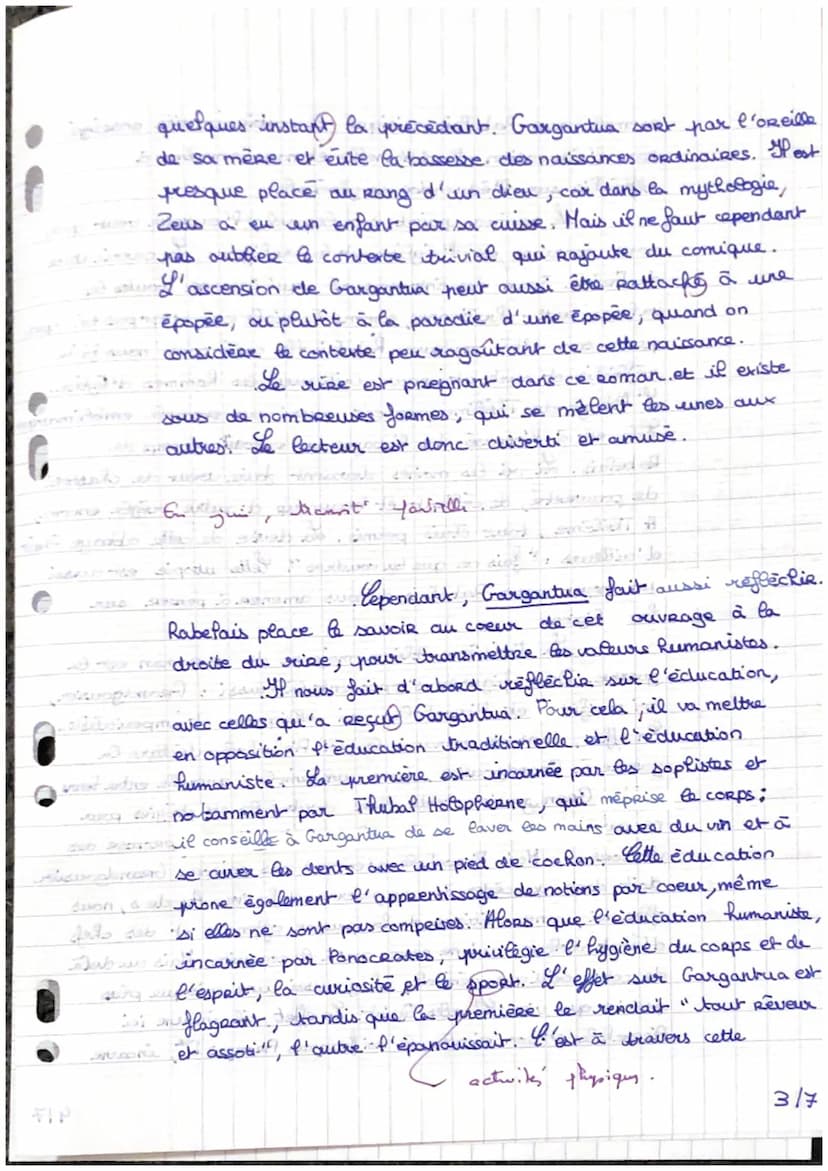 quelques instant la précédant. Gargantua sort par l'oreille
de sa mère et évite la bassesse des naissances ordinaires. Il est
presque placé au rang d'un dieu, car dans la mythologie,
Zeus a eu un enfant par sa cuisse. Mais il ne faut cependant
pas oublier le contexte trivial qui rajoute du comique.
L'ascension de Gargantua peut aussi être rattaché à une
épopée, ou plutôt à la parodie d'une épopée, quand on
considère le contexte peu ragoûtant de cette naissance.
Le rire est prégnant dans ce roman et il existe
sous de nombreuses formes, qui se mêlent les unes aux
autres. Le lecteur est donc diverti et amusé.
transit°
Cependant, Gargantua fait aussi réfléchir.
Rabelais place le savoir au coeur de cet ouvrage à la
droite du rire, pour transmettre les valeurs humanistes.
Il nous fait d'abord réfléchir sur l'éducation,
avec celles qu'a reçut Gargantua. Pour cela, il va mettre
en opposition l'éducation traditionelle et l'éducation
humaniste. La première est incarnée par les sophistes et
notamment par Thubal Holopherne, qui méprise le corps ;
il conseille à Gargantua de se laver les mains avec du vin et à
se curer les dents avec un pied de cochon. Cette éducation
prone également l'apprentissage de notions par coeur, même
si elles ne sont pas comprises. Alors que l'éducation humaniste,
incarnée par Ponocrates, privilégie l'hygiène du corps et de
l'esprit, la curiosité et le sport. L'effet sur Gargantua est
flagrant, tandis que la première le rendait "tout rêveur
et assoti", l'autre l'épanouissait. C'est à travers cette
activités physiques.
3/7